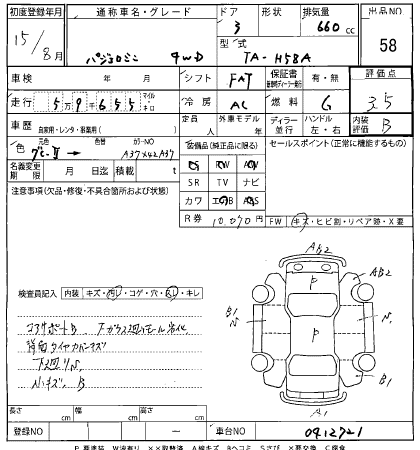 初度登録年月 通称車名・グレード ドア 形状 排気量 出品NO
15/8月 パジェロミニ 4WD 3 660cc 58
型式 TA-H58A
車検 年 月 シフト FAT 保証書 有・無 評価点
走行 5万9千655 マイル キロ 冷房 AC 燃料 G 3.5
車歴 自家用・レンタ・事業用( ) 定員 人 外車モデル 年 ディーラー 並行 ハンドル 左・右 内装評価 B
色 元色 色替 カラーNO A37X42A37 装備品(純正品に限る) セールスポイント(正常に機能するもの)
名義変更期限 月 日 積載 t SR TV ナビ
注意事項(欠品・修復・不具合箇所および状態) カワ エアB
R券 10,070円 FW キズ・ヒビ割・リペア跡・X要
AB2
AB2
P
検査員記入 内装 キズ・汚レ・コゲ・穴・スレ・キレ
B1
コアサポートB
背面タイヤカバーキズ
下回りサビ
小キズ、B
B1
A1
長さ cm 幅 cm 高さ cm
登録NO 車台NO 0412721
P 要塗装 W 波有り XX取替済 A 線キズ Bヘコミ Sさび X要交換 C 腐食